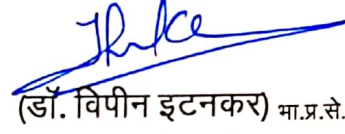 (डॉ. विपीन इटनकर) भा.प्र.से.